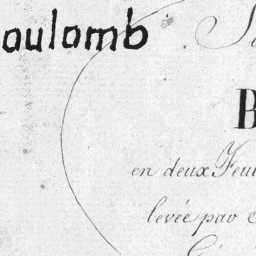 oulomb
B
en deux Feui
levée par